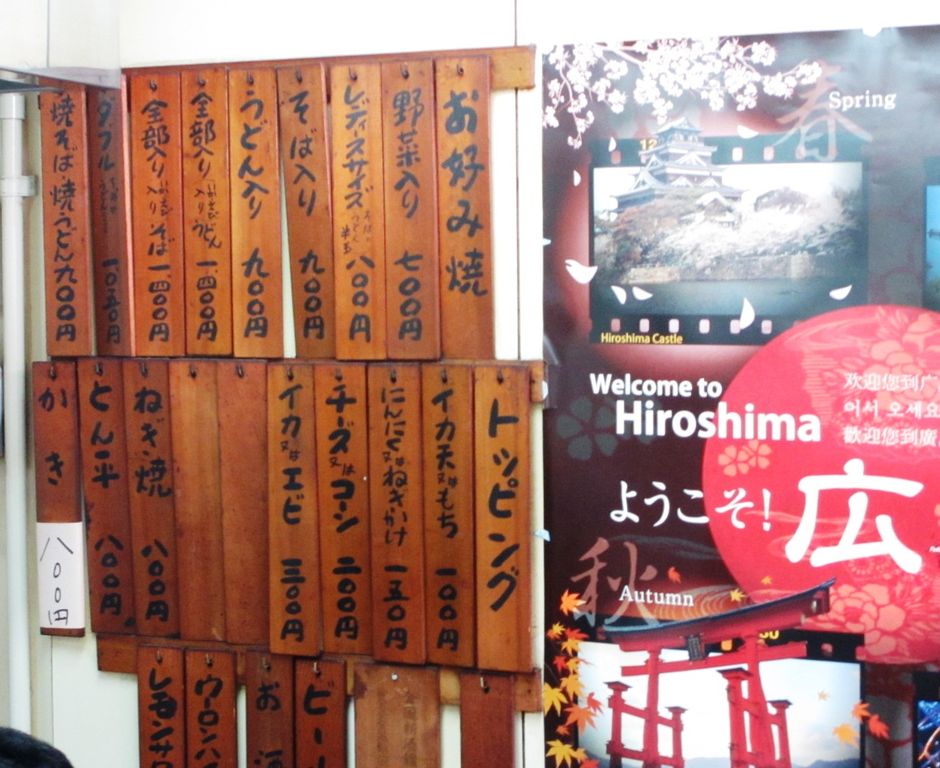 お好み焼
野菜入り 七〇〇円
レディスサイズ 八〇〇円
そば入り 九〇〇円
うどん入り 九〇〇円
全部入り 入り うどん 一、四〇〇円
全部入り 入り そば 一、四〇〇円
ダブル 一、〇五〇円
焼そば 焼うどん 九〇〇円
トッピング
イカ天又はもち 一〇〇円
にんにく又はねぎかけ 一五〇円
チーズ又はコーン 二〇〇円
イカ又はエビ 三〇〇円
ねぎ焼 八〇〇円
とん平 八〇〇円
かき 八〇〇円
ビー
お
ウーロンハ
レモンサ
春 Spring
12
Hiroshima Castle
Welcome to
Hiroshima
欢迎您到广
어서 오세요
歡迎您到廣
ようこそ！
広
秋 Autumn